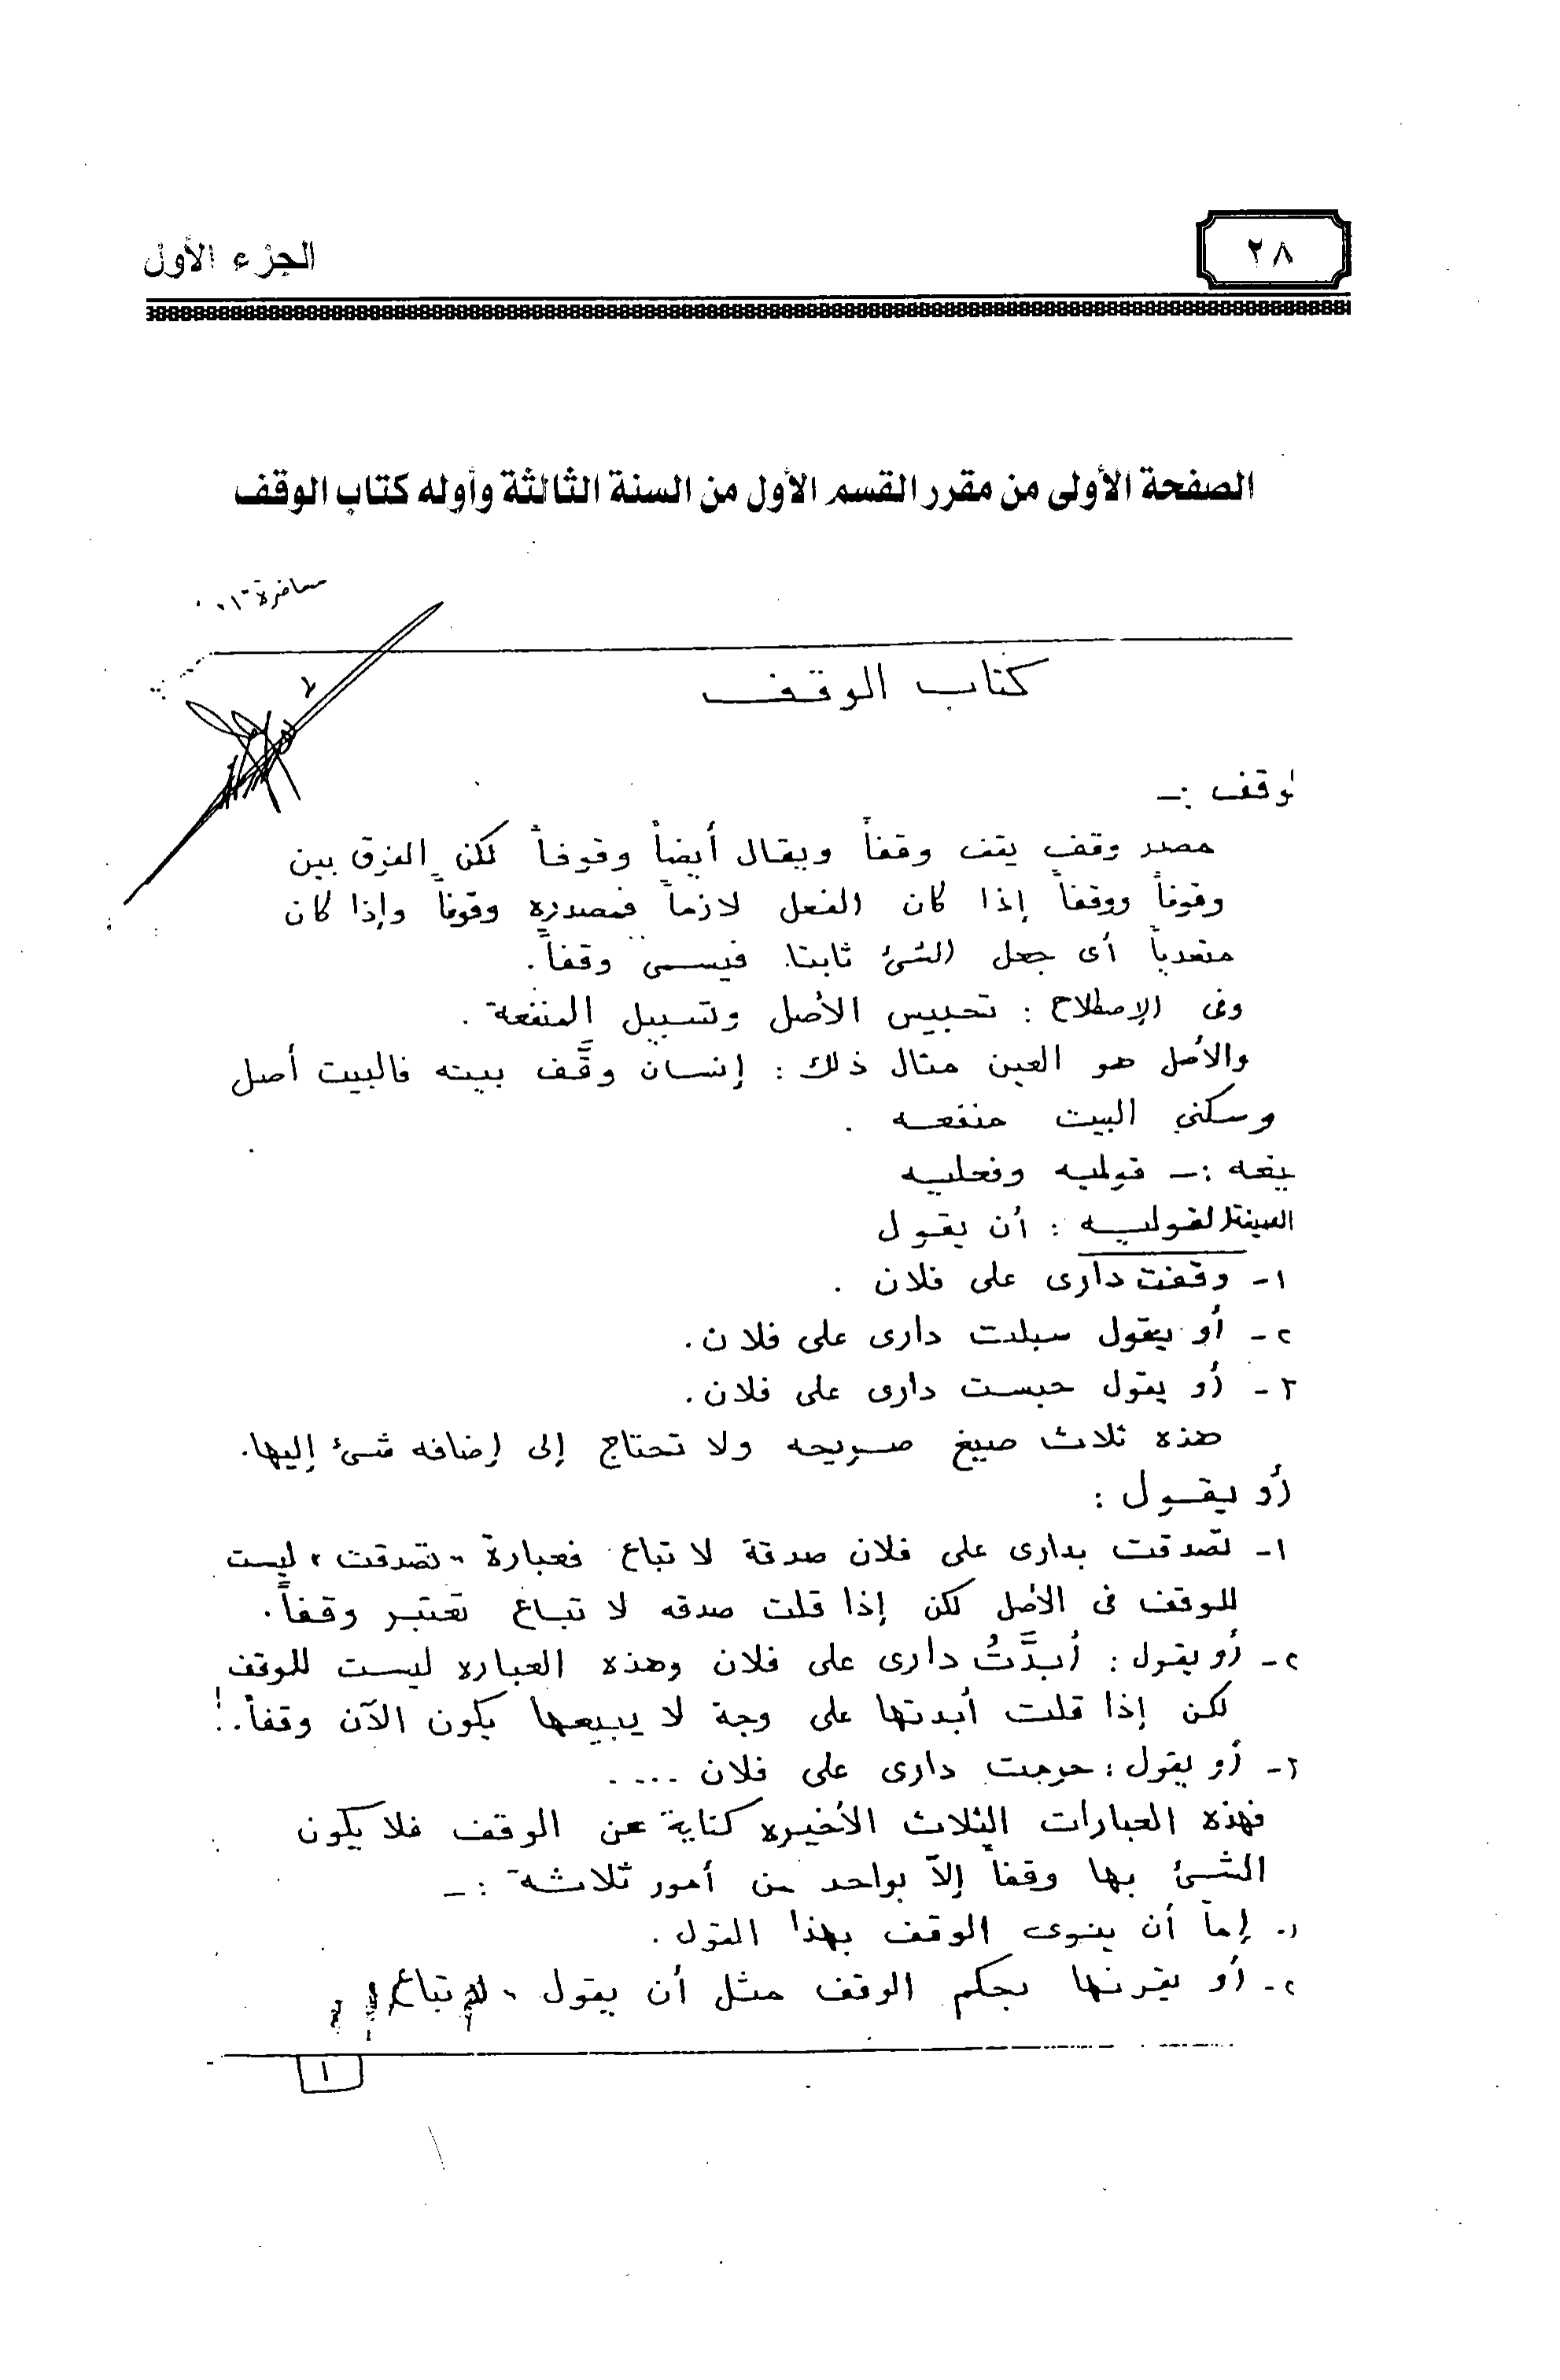 ٢٨
الجزء الأول
الصفحة الأولى من مقرر القسم الأول من السنة الثالثة وأوله كتاب الوقف
كتاب الوقف
لوقف :-
مصدر وقف يقف وقفاً ويقال أيضاً وقوفاً لكن الفرق بين
وقوفاً ووقفاً إذا كان الفعل لازماً فمصدره وقوفاً وإذا كان
متعدياً أى جعل الشئ ثابتا. فيسمى وقفاً.
وفى الإصطلاح : تحبيس الأصل وتسبيل المنفعة .
والأصل هو العين مثال ذلك : إنسان وقَّف بيته فالبيت أصل
وسكنى البيت منفعه .
يغه :- قوليه وفعليه
الصيغة القوليه : أن يقول
١- وقفت دارى على فلان .
٢- أو يقول سبلت دارى على فلان.
٣- أو يقول حبست دارى على فلان.
هذه ثلاث صيغ صريحه ولا تحتاج إلى إضافه شئ إليها.
أو يقول :
١- تصدقت بدارى على فلان صدقة لا تباع فعبارة "تصدقت" ليست
للوقف فى الأصل لكن إذا قلت صدقه لا تباع تعتبر وقفاً.
٢- أو يقول : أبَّدتُ دارى على فلان وهذه العباره ليست للوقف
لكن إذا قلت أبدتها على وجة لا يبيعها يكون الآن وقفاً.!
٣- أو يقول : حرمت دارى على فلان ....
فهذه العبارات الثلاث الأخيره كناية عن الوقف فلا يكون
الشئ بها وقفاً إلاّ بواحد من أمور ثلاثة :-
١- إما أن ينوى الوقف بهذا القول .
٢- أو يقرنها بحكم الوقف مثل أن يقول " لا تباع
١